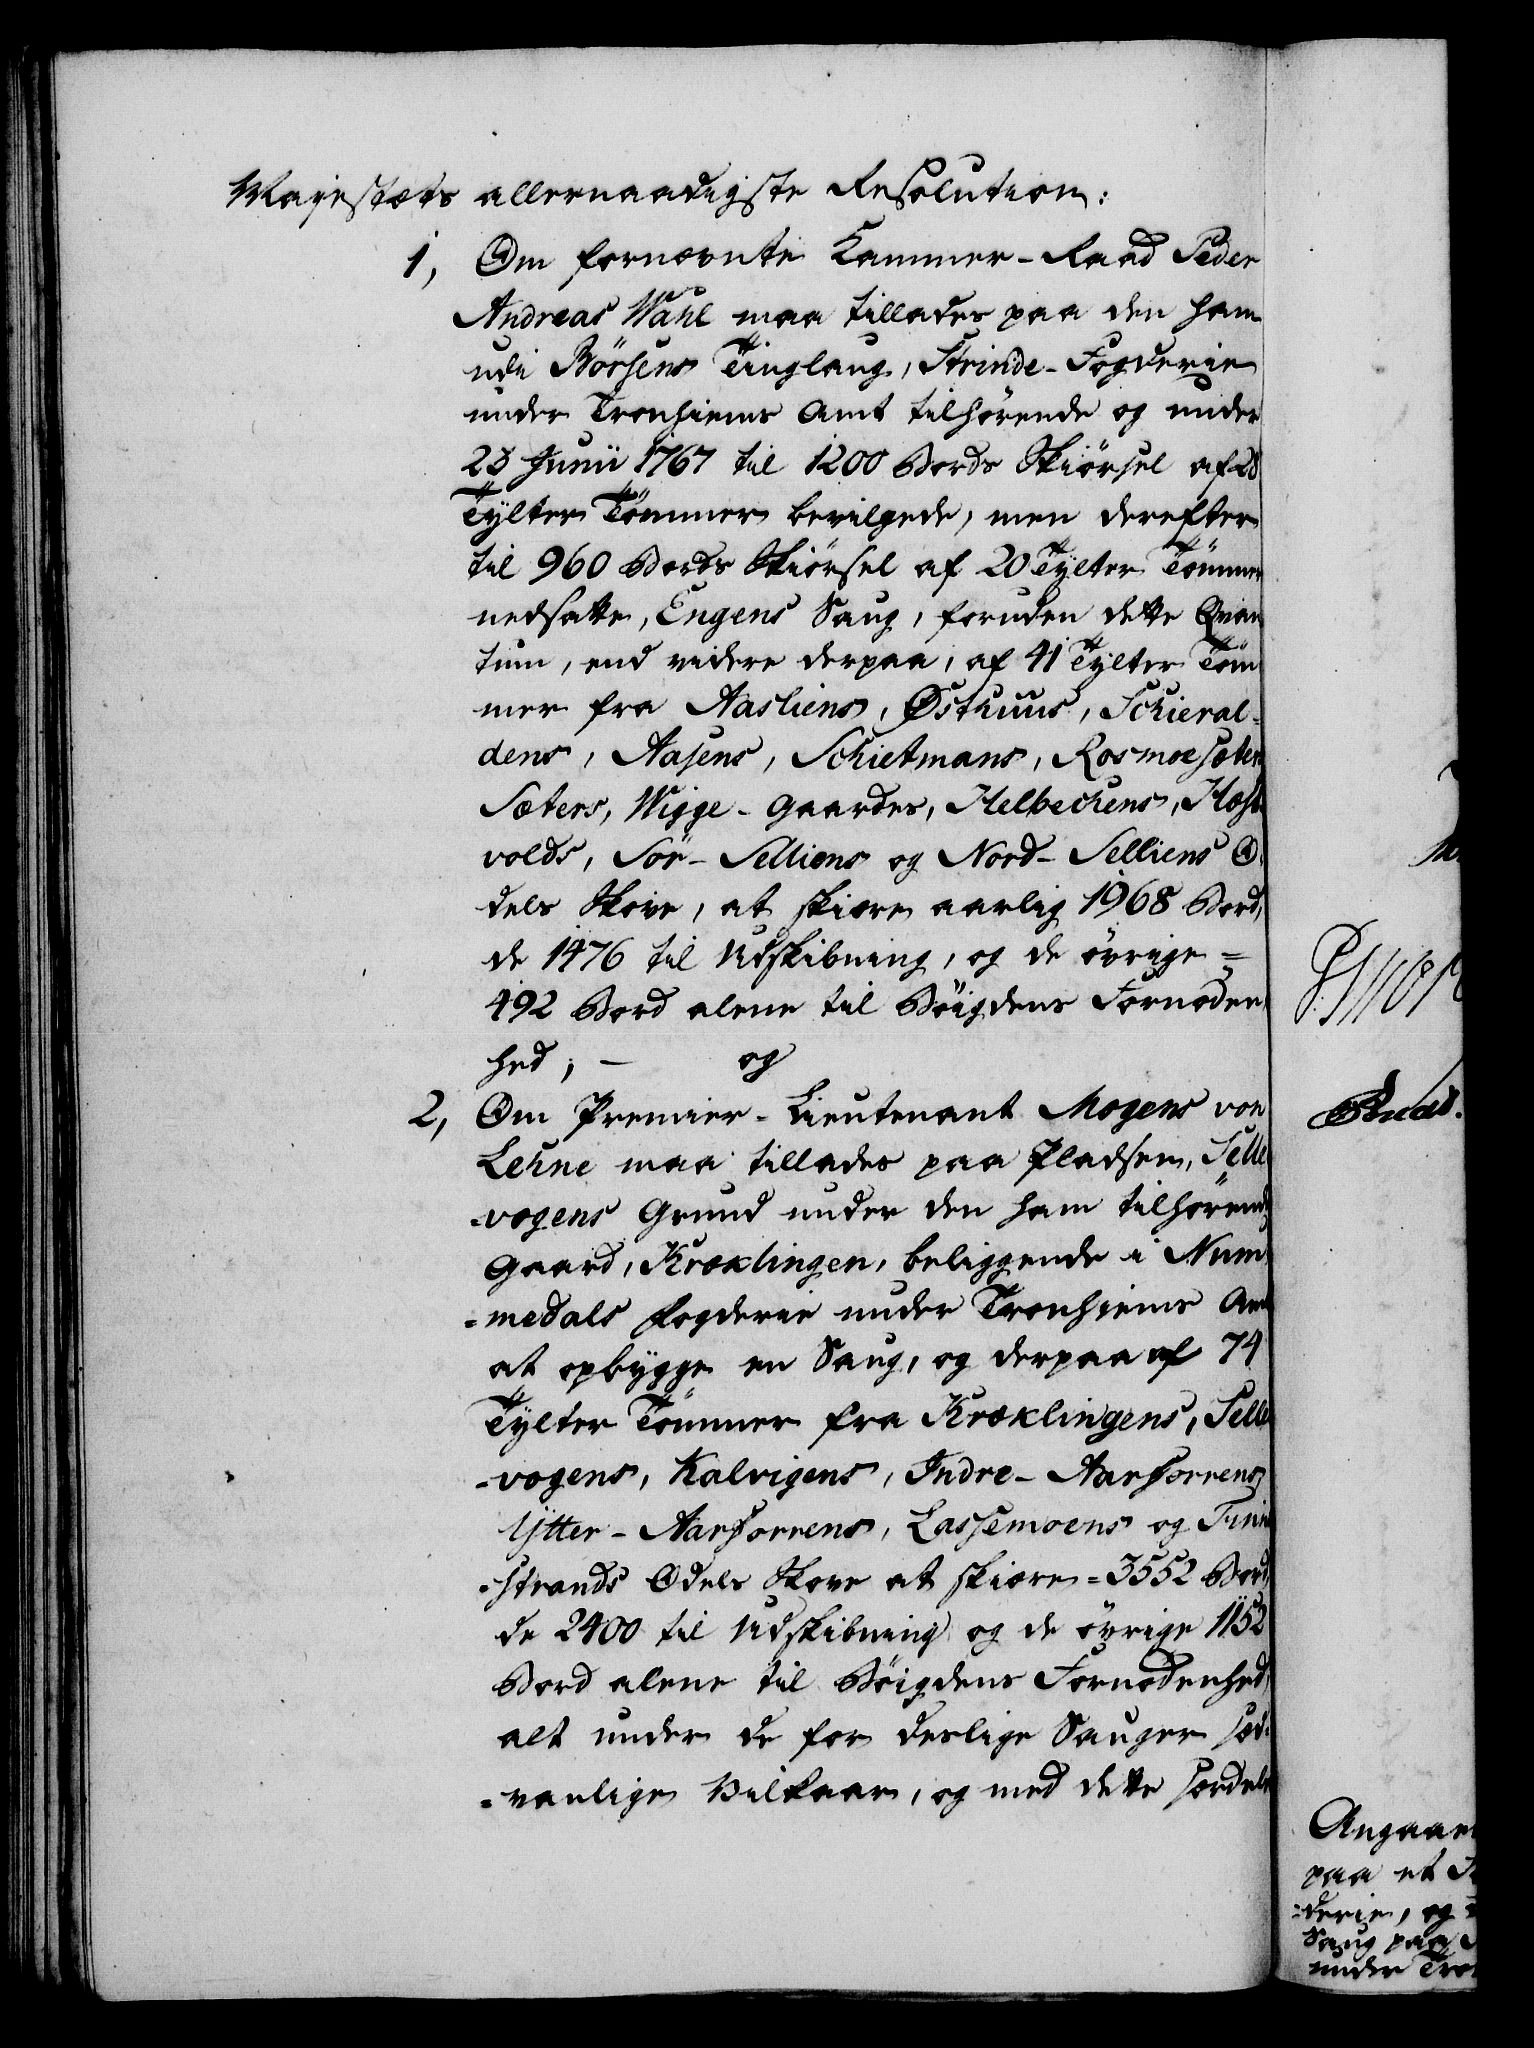 Majestæts allernaadigste Resolution:
1, Om fornævnte Kammer-Raad Peder
Andreas Wahl maa tillades paa den ham
udi Börsens Tinglaug, Strinde-Fogderie
under Tronhiems Amt tilhörende og under
23 Junii 1767 til 1200 Bords Skiörsel af 28
Tylter Tömmer bevilgede, men derefter
til 960 Bords Skiörsel af 20 Tylter Tömmer
nedsatte, Engens Saug, foruden dette Qvan
tum, end videre derpaa, af 41 Tylter Töm
mer fra Aasliens, Østhuus, Schieral-
dens, Aasens, Schietmans, Rosmoesæter
Sæters, Wigge-Gaardes, Helbechens, Hæst
volds, Sör-Selliens og Nord-Selliens O-
dels Skove, at skiære aarlig 1968 Bord,
de 1476 til Udskibning, og de övrige =
492 Bord alene til Böigdens Fornöden
hed; – og
2, Om Premier-Lieutenant Mogens von
Lehne maa tillades paa Pladsen, Selle
-vogens Grund under den ham tilhörende
Gaard, Kræklingen, beliggende i Num
=medals Fogderie under Tronhiems Amt
at opbygge en Saug, og derpaa af 74
Tylter Tömmer fra Kræklingens, Selle
-vogens, Kalvigens, Indre-Aarforrens
Ytter-Aarforrens, Lassemoens og Finne
-strands Odels Skove at skiære = 3552 Bord
de 2400 til Udskibning og de övrige 1152
Bord alene til Böigdens Fornödenhed,
alt under de for deslige Sauger sæd-
=vanlige Vilkaar, og med dette særdeles
Angaaen
paa et
=derie, og
Saug paa
under Tro